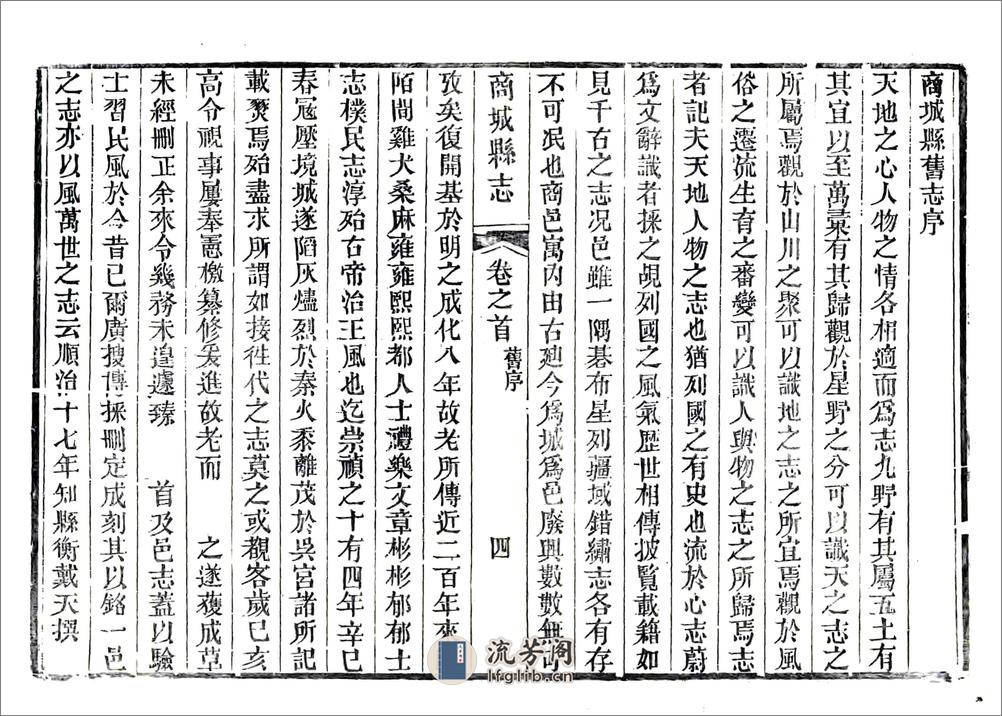 商城縣舊志序
天地之心人物之情各相適而爲志九野有其屬五土有
其宜以至萬彙有其歸觀於星野之分可以識天之志之
所屬焉觀於山川之聚可以識地之志之所宜焉觀於風
俗之遷流生育之番變可以識人與物之志之所歸焉志
者記夫天地人物之志也猶列國之有史也流於心志蔚
爲文辭識者採之覘列國之風氣歷世相傳披覽載籍如
見千古之志况邑雖一隅碁布星列疆域錯繡志各有存
不可泯也商邑寓內由古迨今爲城爲邑廢興數數無
商城縣志
卷之首
舊序
四
攷矣復開基於明之成化八年故老所傳近二百年來
陌間雞犬桑麻雍雍熙熙都人士禮樂文章彬彬郁郁士
志樸民志淳殆古帝治王風也迄崇禎之十有四年辛巳
春冦壓境城遂陷灰燼烈於秦火黍離茂於吳宮諸所記
載爕焉殆盡求所謂如接徃代之志莫之或觀客歲己亥
高令視事屢奉憲檄纂修爰進故老而 之遂獲成草
未經刪正余來令幾務未遑遽臻 首及邑志蓋以驗
士習民風於今昔已爾廣搜博採刪定成刻其以銘一邑
之志亦以風萬世之志云順治十七年知縣衡戴天撰
流芳阁
lfglib.cn